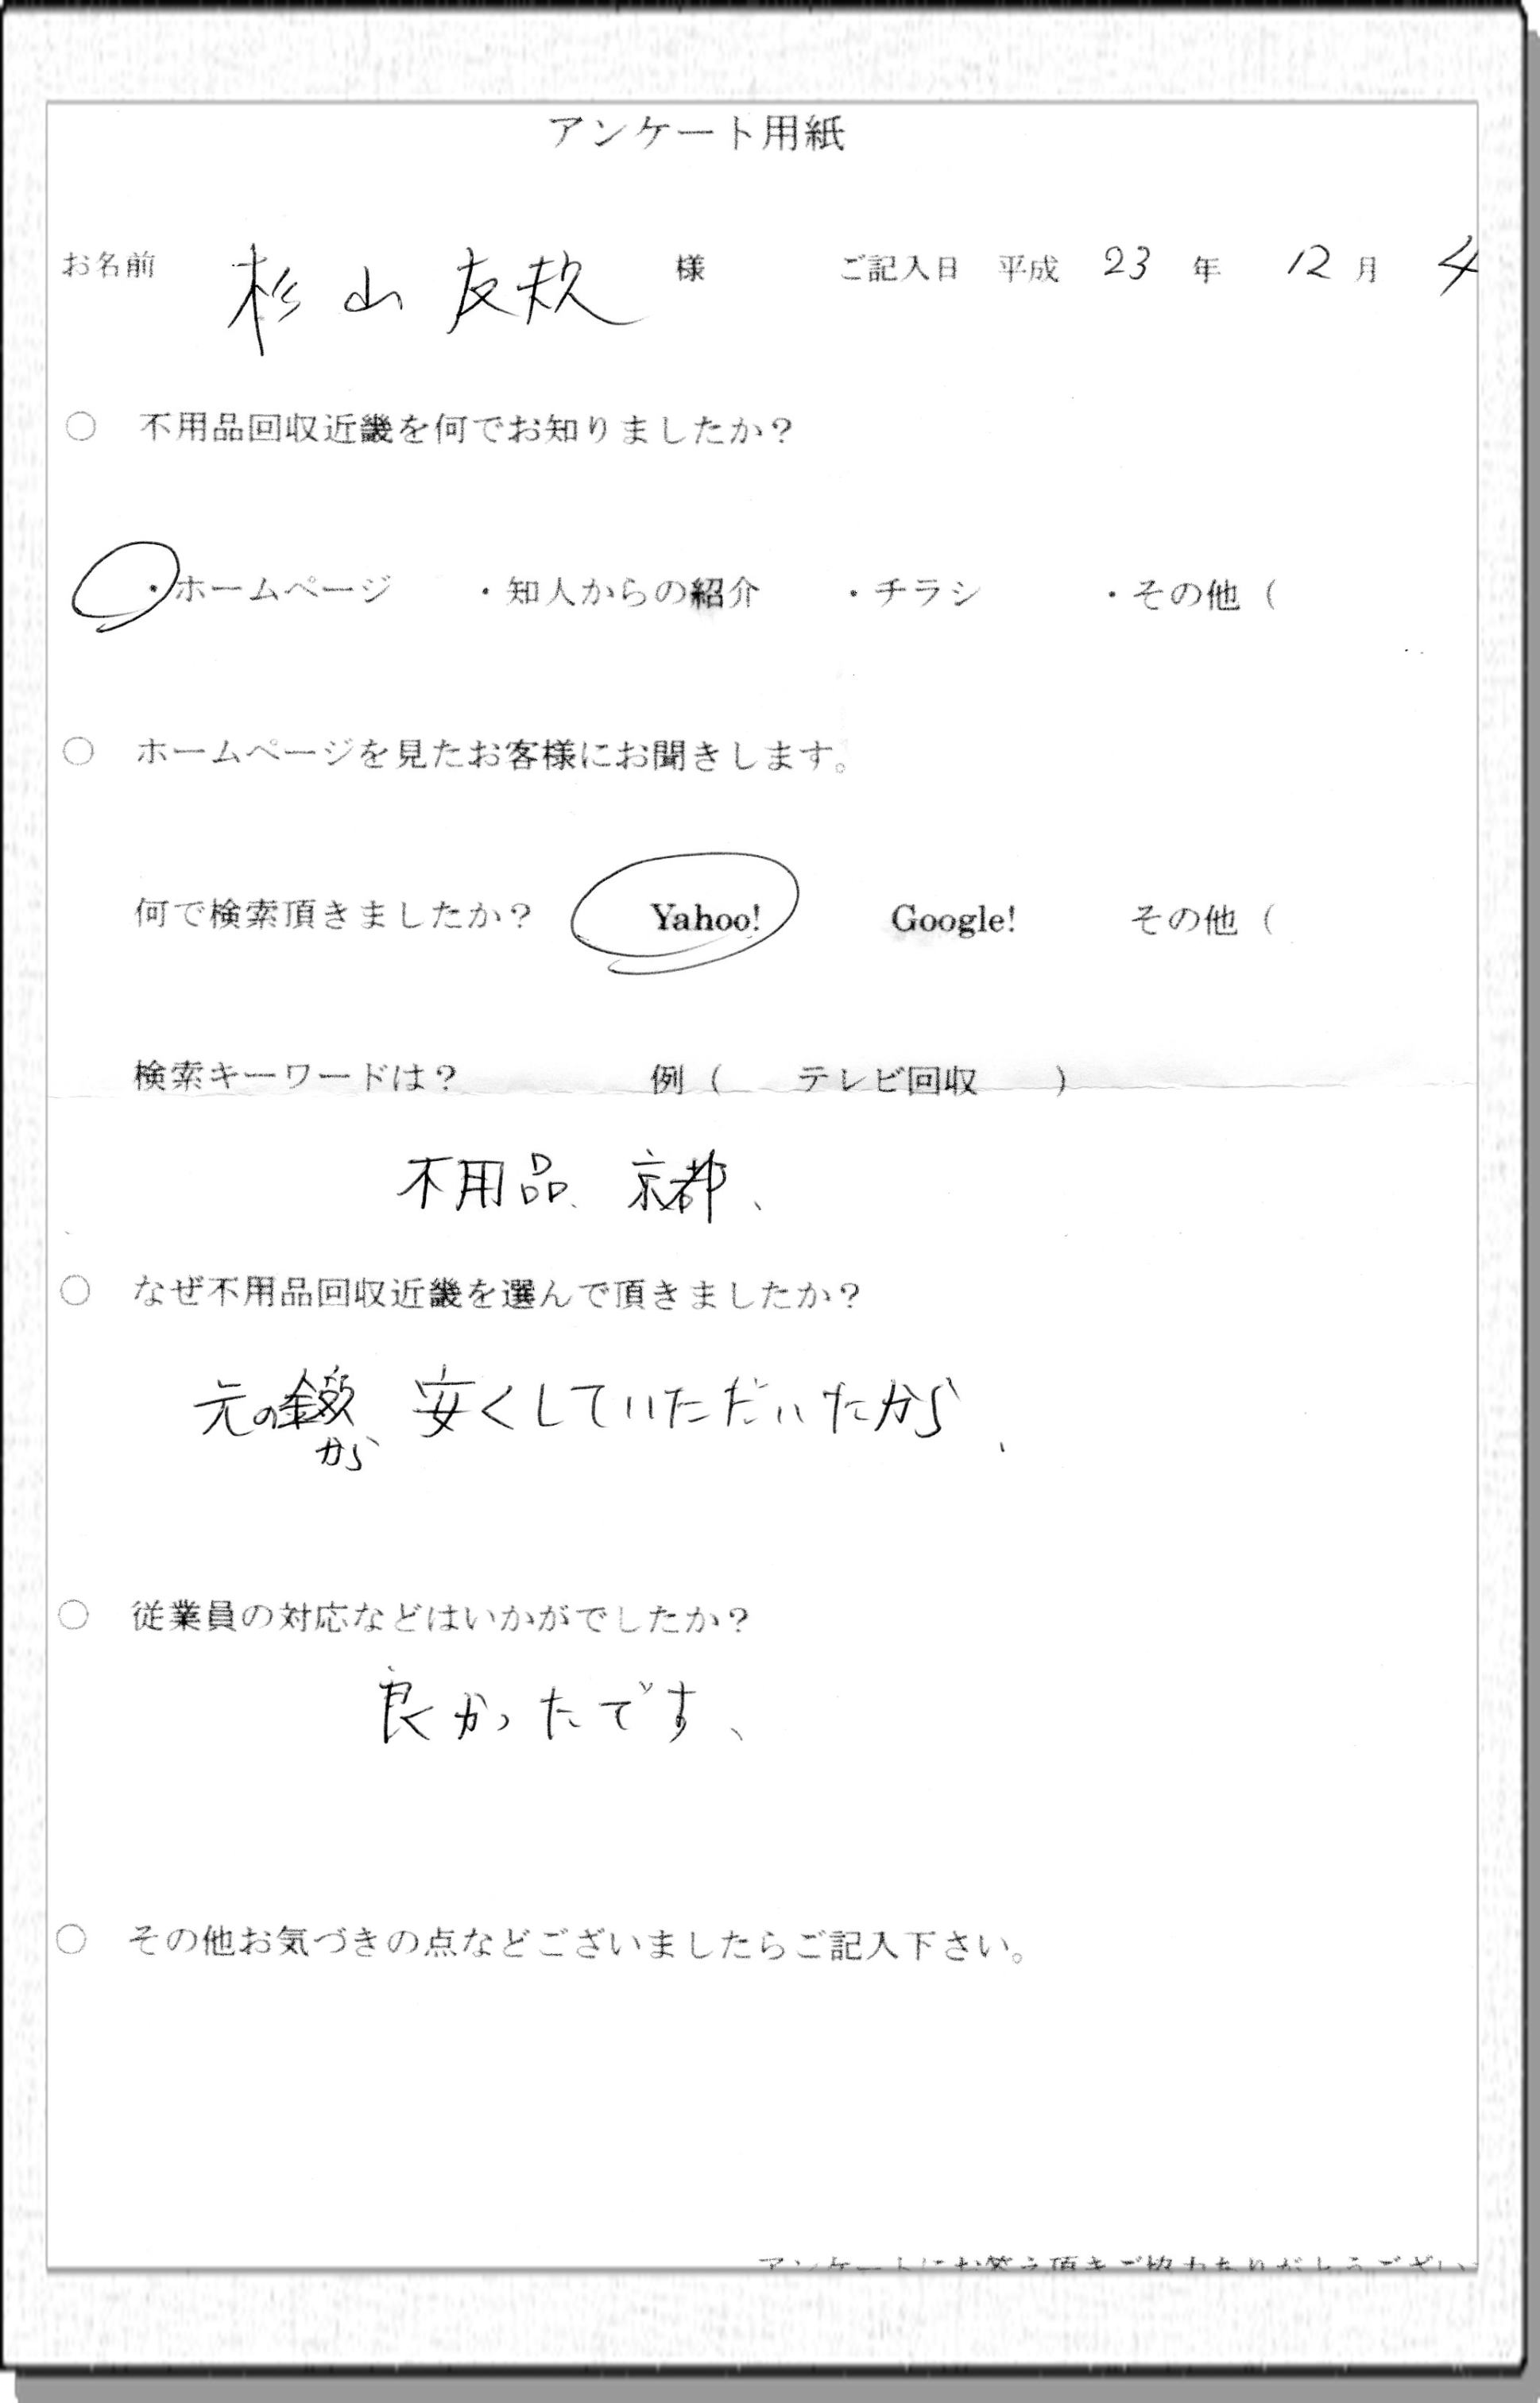 アンケート用紙
お名前 杉山友 様 ご記入日 平成 23 年 12 月 4
○ 不用品回収近畿を何でお知りましたか？
・ホームページ ・知人からの紹介 ・チラシ ・その他（
○ ホームページを見たお客様にお聞きします。
何で検索頂きましたか？ Yahoo! Google! その他（
検索キーワードは？ 例（ テレビ回収 ）
不用品、京都、
○ なぜ不用品回収近畿を選んで頂きましたか？
元の から 安くしていただいたから、
○ 従業員の対応などはいかがでしたか？
良かったです、
○ その他お気づきの点などございましたらご記入下さい。
アンケートにお答え頂きご協力ありがとうござい